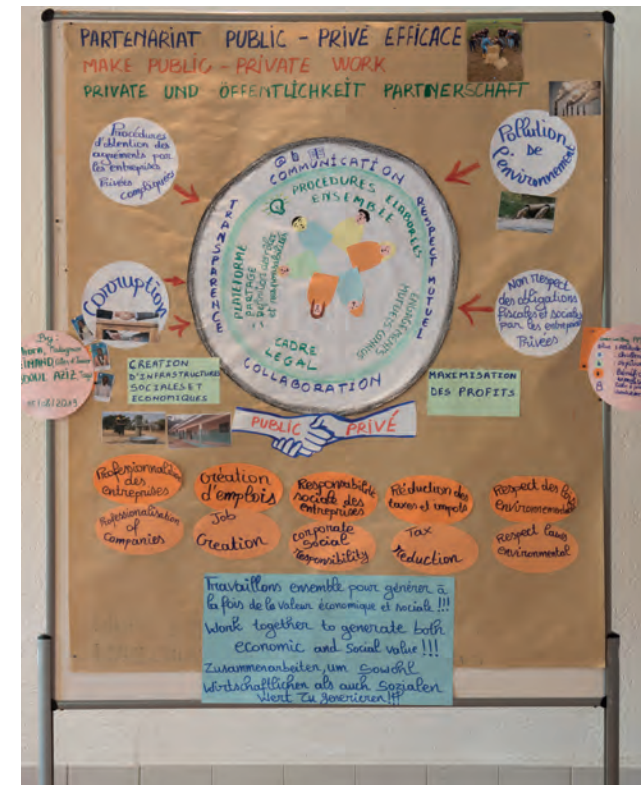 PARTENARIAT PUBLIC - PRIVÉ EFFICACE
MAKE PUBLIC - PRIVATE WORK
PRIVATE UND ÖFFENTLICHKEIT PARTNERSCHAFT
Procédures
d'obtention des
agréments par
les entreprises
Privées
compliquées
Pollution
de
l'environnement
Corruption
Non Respect
des obligations
fiscales et sociales
par les entreprises
Privées
COMMUNICATION
TRANSPARENCE
RESPECT MUTUEL
COLLABORATION
PROCÉDURES ELABORÉES
ENSEMBLE
PLATEFORME
PARTAGE
Définition des rôles
et responsabilités
ENGAGEMENTS
MUTUELS CONNUS
CADRE
LEGAL
By:
Madagascar
ABDOUL AZIZ
2019
CREATION
D'INFRASTRUCTURES
SOCIALES ET
ECONOMIQUES
MAXIMISATION
DES PROFITS
PUBLIC PRIVÉ
Professionnalisation
des
entreprises
Création
d'emplois
Responsabilité
sociale des
entreprises
Réduction des
taxes et impots
Respect des lois
Professionalisation
of
companies
Job
Creation
corporate
social
responsibility
Tax
Reduction
Respect laws
environmental
Travaillons ensemble pour générer à
la fois de la valeur économique et sociale!!!
Work together to generate both
economic and social value!!!
Zusammenarbeiten, um sowohl
wirtschaftlichen als auch Sozialen
Wert zu generieren!!!